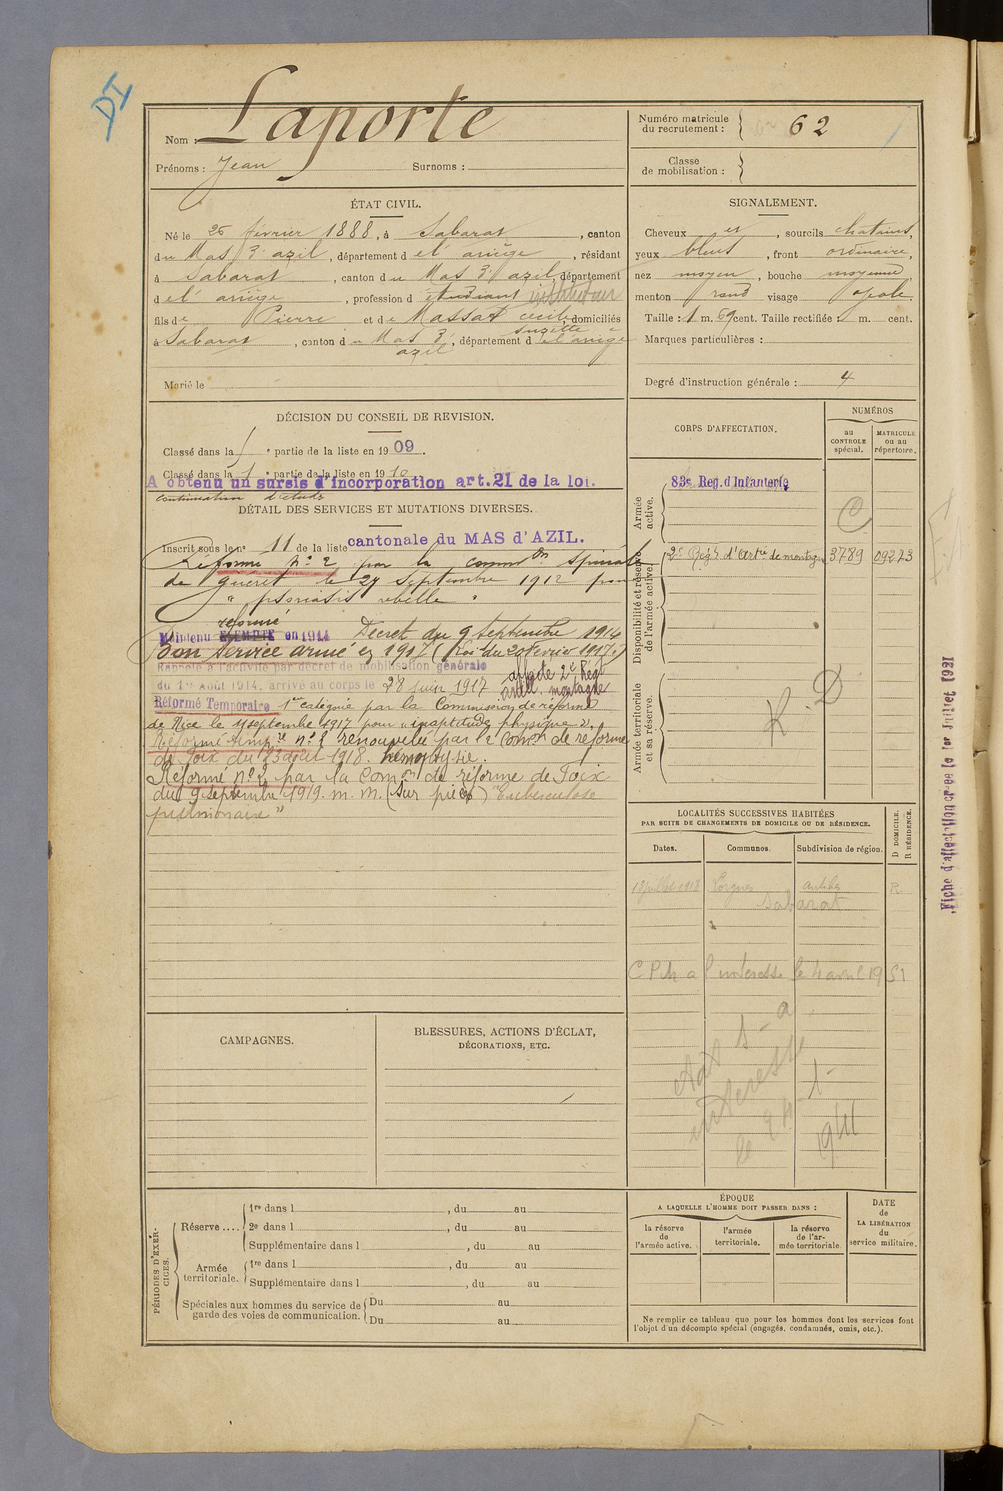 DI
Nom : Laporte
Prénoms : Jean Surnoms :
Numéro matricule du recrutement : 62
Classe de mobilisation :
ÉTAT CIVIL.
Né le 26 février 1888, à Sabarat, canton
du Mas d'azil, département de l'ariège, résidant
à Sabarat, canton du Mas d'azil, département
de l'ariège, profession d étudiant instituteur
fils de Pierre et de Massat cecile suzette, domiciliés
à Sabarat, canton du Mas d'azil, département de l'ariège
Marié le
SIGNALEMENT.
Cheveux et, sourcils chatains,
yeux bleus, front ordinaire,
nez moyen, bouche moyenne,
menton rond visage ovale.
Taille : 1 m. 59 cent. Taille rectifiée : m. cent.
Marques particulières :
Degré d'instruction générale : 4
DÉCISION DU CONSEIL DE REVISION.
Classé dans la partie de la liste en 1909.
Classé dans la 1 partie de la liste en 1910
A obtenu un sursis d'incorporation art. 21 de la loi.
continuation d'études
DÉTAIL DES SERVICES ET MUTATIONS DIVERSES.
Inscrit sous le n° 11 de la liste cantonale du MAS d'AZIL.
Réformé N° 2 par la common spéciale
de Guéret le 27 Septembre 1912 pour
" psoriasis rebelle "
réformé
Maintenu EXEMPTÉ en 1914 Décret du 9 Septembre 1914
Bon service armé en 1917 (Loi du 20 février 1917.)
Rappelé à l'activité par décret de mobilisation générale
du 1er Août 1914, arrivé au corps le 28 juin 1917
affecté 2e Régt artill. montagne
Réformé Temporaire 1ère catégorie par la Commission de réforme
de Nice le septembre 1917 pour « inaptitude physique ».
Réformé temp.re n° 2 renouvelée par la comon de réforme
de Foix du 23 août 1918. hémoptysie.
Réformé n° 2 par la Comon de réforme de Foix
du 9 septembre 1919. m. m. (sur pièces) "Tuberculose
pulmonaire"
CORPS D'AFFECTATION.
NUMÉROS
au CONTROLE spécial.
MATRICULE ou au répertoire.
Armée active.
83e Reg. d'Infanterie
Disponibilité et réserve de l'armée active.
2e Régt d'Artie de montagne 3789 09273
Armée territoriale et sa réserve.
R.D
LOCALITÉS SUCCESSIVES HABITÉES
PAR SUITE DE CHANGEMENTS DE DOMICILE OU DE RÉSIDENCE.
Dates. Communes. Subdivision de région. D DOMICILE. R RÉSIDENCE.
juillet 1918 Lorgues Antibes R
Sabarat
C P M a l'interessé le 4 avril 1951
a
interesse
le 1941
Fiche d'affectation créée le 1er Juillet 1921
CAMPAGNES.
BLESSURES, ACTIONS D'ÉCLAT,
DÉCORATIONS, ETC.
PÉRIODES D'EXERCICES.
Réserve ....
1re dans l , du au
2e dans l , du au
Supplémentaire dans l , du au
Armée territoriale.
1re dans l , du au
Supplémentaire dans l , du au
Spéciales aux hommes du service de
garde des voies de communication.
Du au
Du au
ÉPOQUE
A LAQUELLE L'HOMME DOIT PASSER DANS :
la réserve de l'armée active.
l'armée territoriale.
la réserve de l'armée territoriale.
DATE de LA LIBÉRATION du service militaire.
Ne remplir ce tableau que pour les hommes dont les services font
l'objet d'un décompte spécial (engagés, condamnés, omis, etc.).